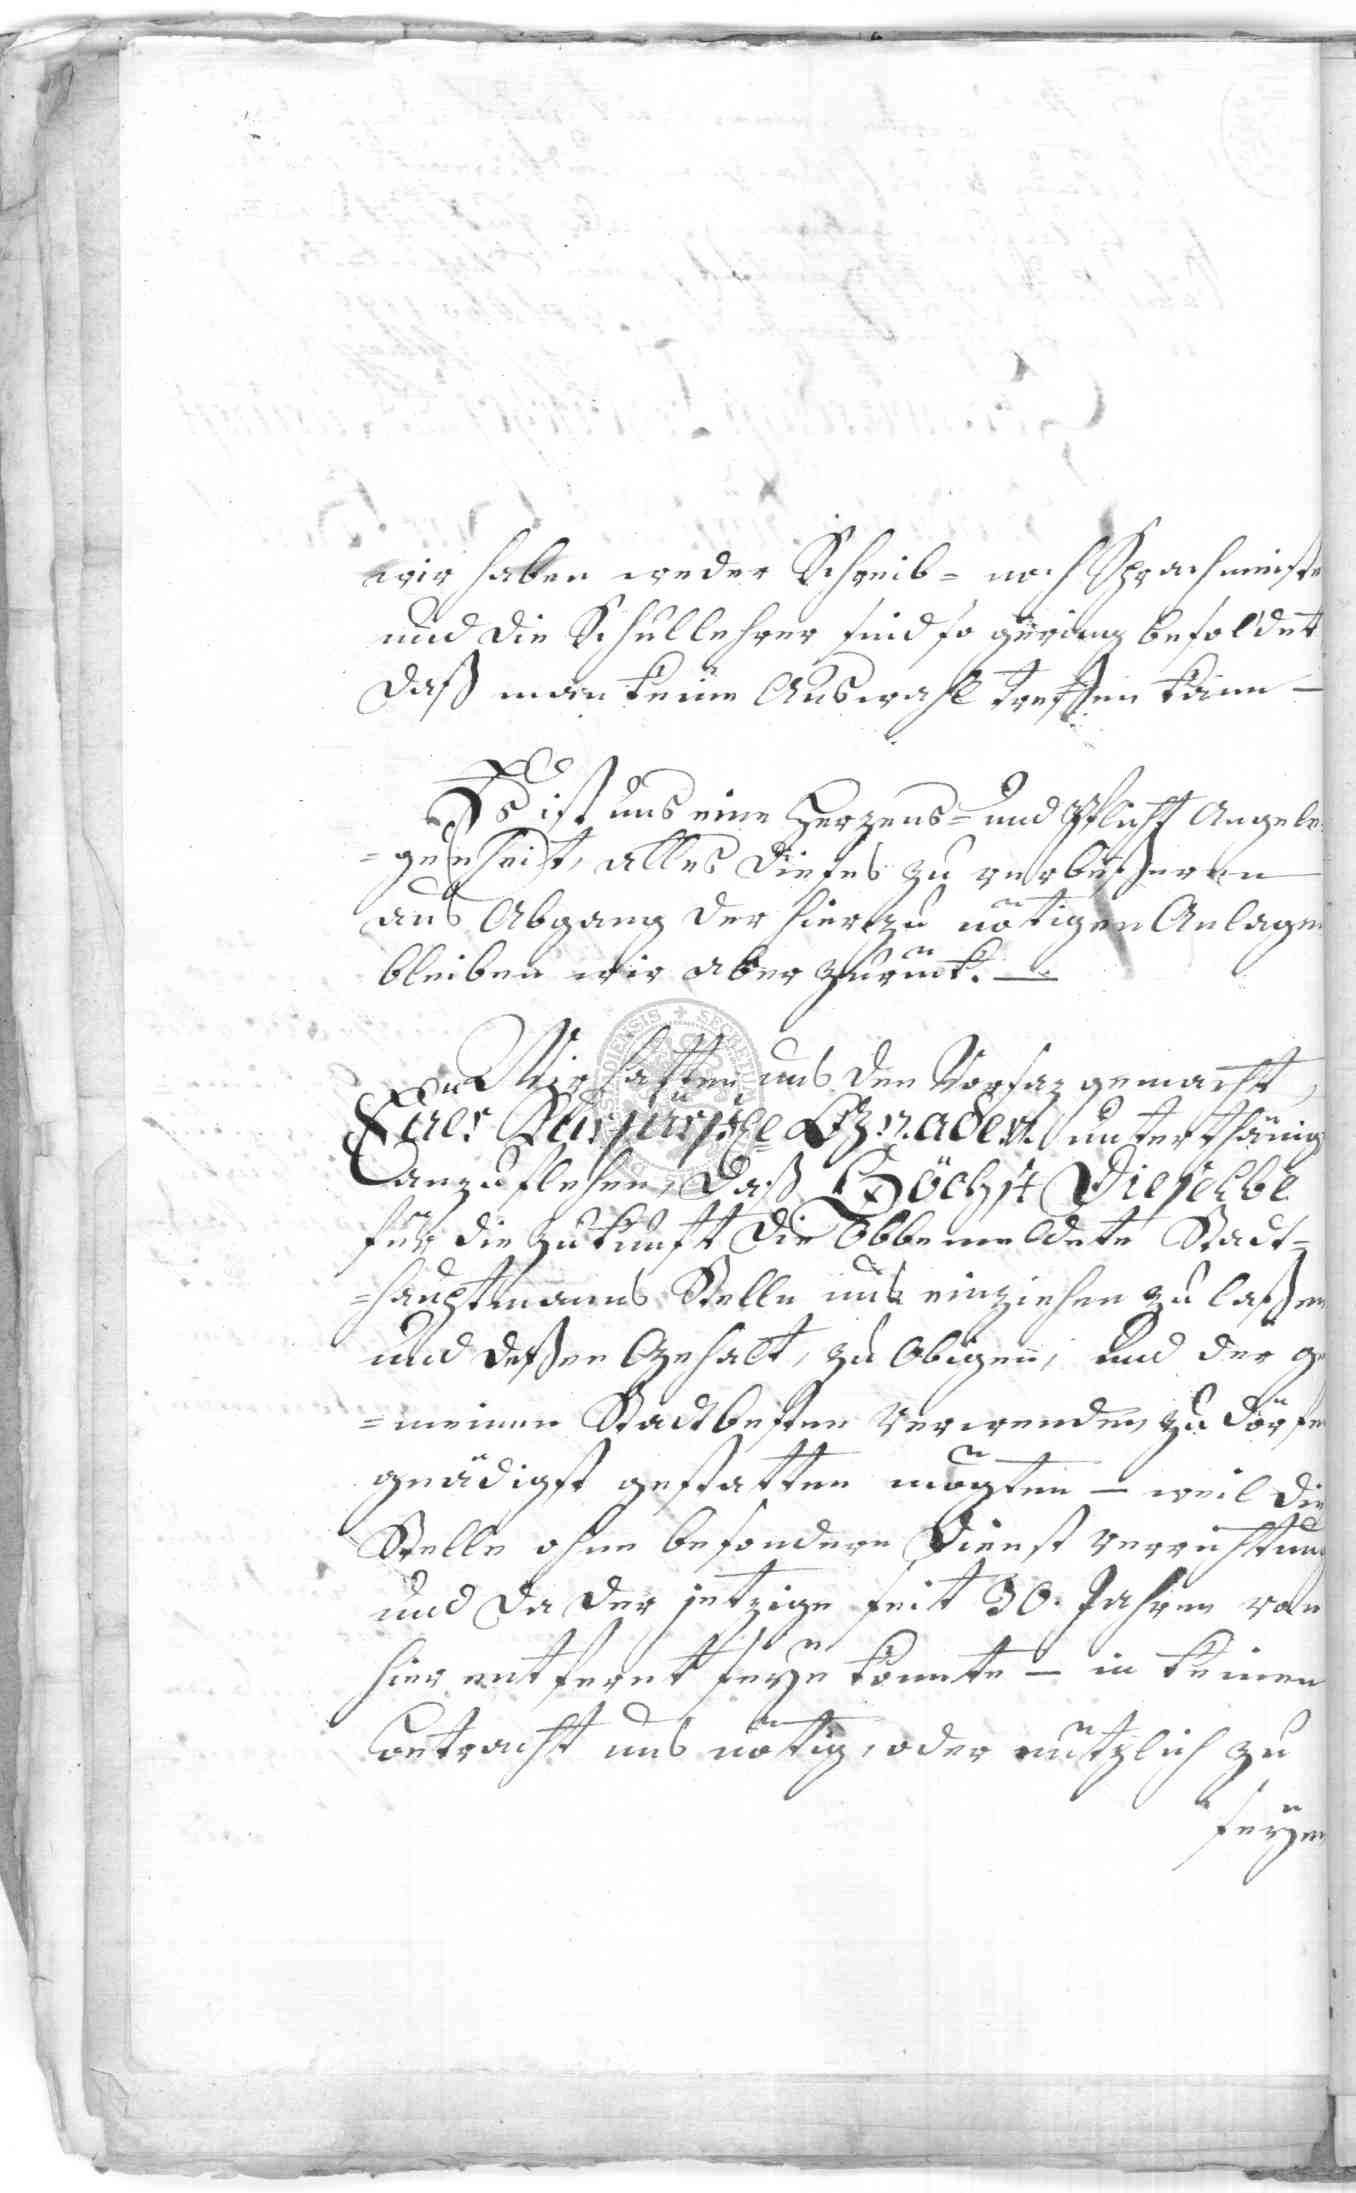 wir haben weder Schreib= noch Sprachmeiste
und die Schullehrer sind so gering besoldet
daß man keine Auswahl treffen kann —
Es ist uns eine Herzens= und Pflicht Angele
=genheit, alles dieses zu verbeßeren
aus Abgang der hierzu nötigen Anlagen
bleiben wir aber zurück. —
Wir hatten uns den Vorsaz gemacht,
Euer Kurfürstliche Gnaden unterthänig
anzuflehen, daß Höchst Dieselbe
für die Zukunft die Obbemeldete Stadt=
=hauptmanns Stelle uns einziehen zu laßen
und deßen Gehalt, zu Obigen, und der ge
=meinen Stadtbesten verwenden zu dörfen
gnädigst gestatten mögten — weil die
Stelle ohne besondere Dienst verrichtung
und da der jetzige seit 30. Jahren von
hier entfernt seyn konnte — in keinen
Betracht uns nötig, oder nützlich zu
seyen